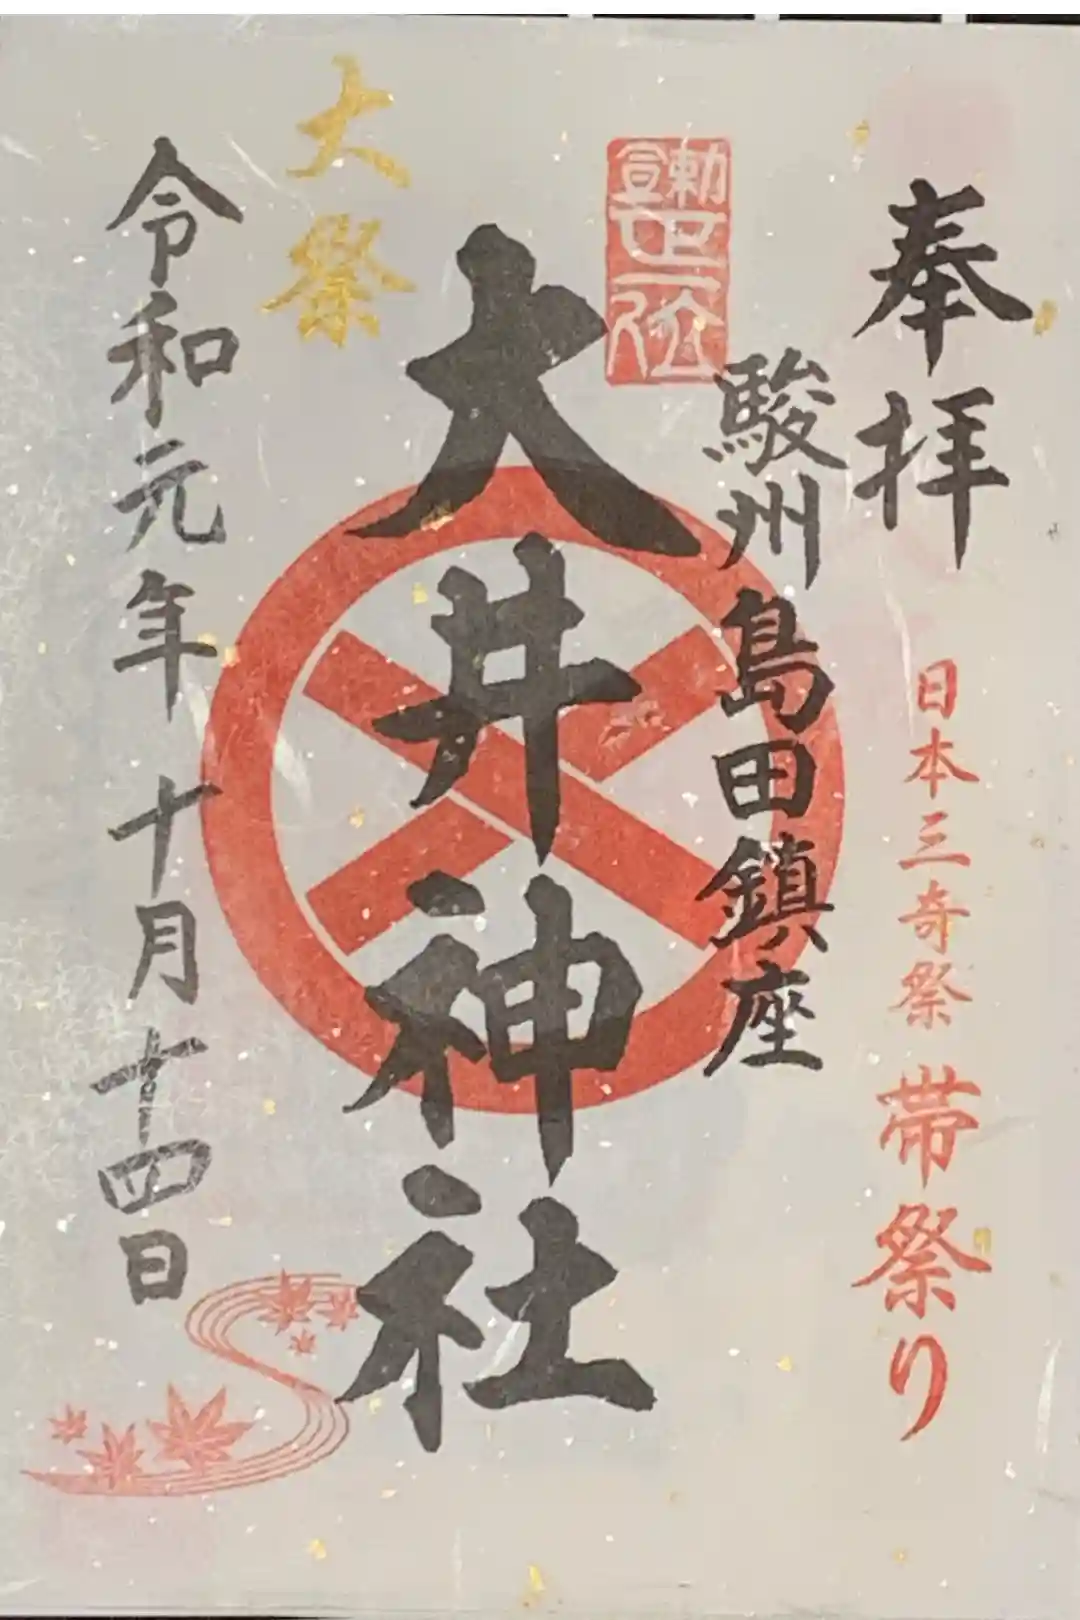 奉拝
日本三奇祭 帯祭り
駿州島田鎮座
勅宣
正一位
大井神社
大祭
令和元年 十月 十四日